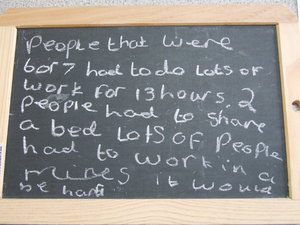 People that were
6or7 had to do lots of
work for 13 hours. 2
People had to share
a bed Lots OF People
had to work in a
mines it would
be hard